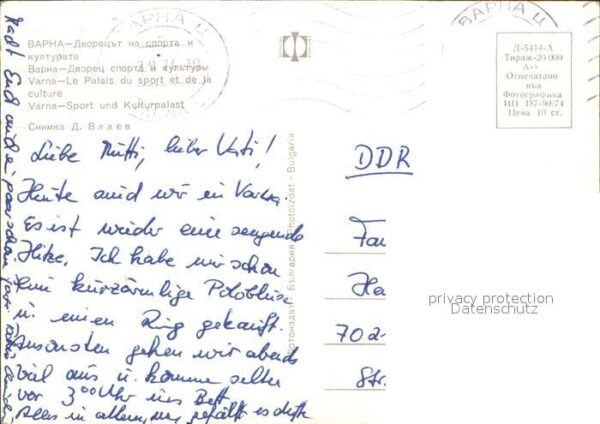 ВАРНА Ц
ВАРНА Ц
ВАРНА—Дворецът на спорта и
културата
Варна—Дворец спорта и культуры
Varna—Le Palais du sport et de la
culture
Varna—Sport und Kulturpalast
Снимка Д. Влаев
Д-5414-А
Тираж 20 000
Отпечатано
във
Фотографика
ИП 187-90/74
Цена 10 ст.
Liebe Mutti, lieber Vati!
Heute sind wir in Varna.
Es ist wieder eine sengende
Hitze. Ich habe mir schon
eine kurzärmlige Polobluse
u. einen Ring gekauft.
Ansonsten gehen wir abends
viel aus u. kommen selten
vor 3⁰⁰ Uhr ins Bett.
Alles in allem, mir gefällt es
DDR
Fam
Ha
702
Str.
Фотоиздат · България · Photoizdat · Bulgaria
privacy protection
Datenschutz